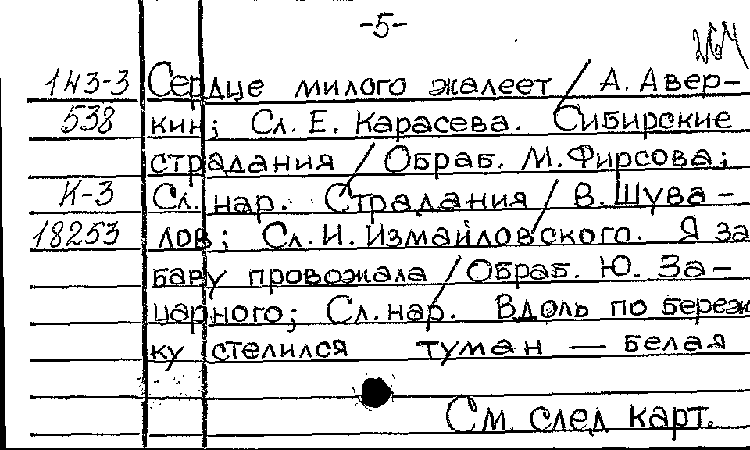 -5-
264
143-3 Сердце милого жалеет / А. Авер-
538 кин; Сл. Е. Карасева. Сибирские
страдания / Обраб. М. Фирсова;
К-3 Сл. нар. Страдания / В. Шува-
18253 лов; Сл. И. Измайловского. Я за
баву провожала / Обраб. Ю. За-
царного; Сл. нар. Вдоль по береж
ку стелился туман — белая
См. след карт.